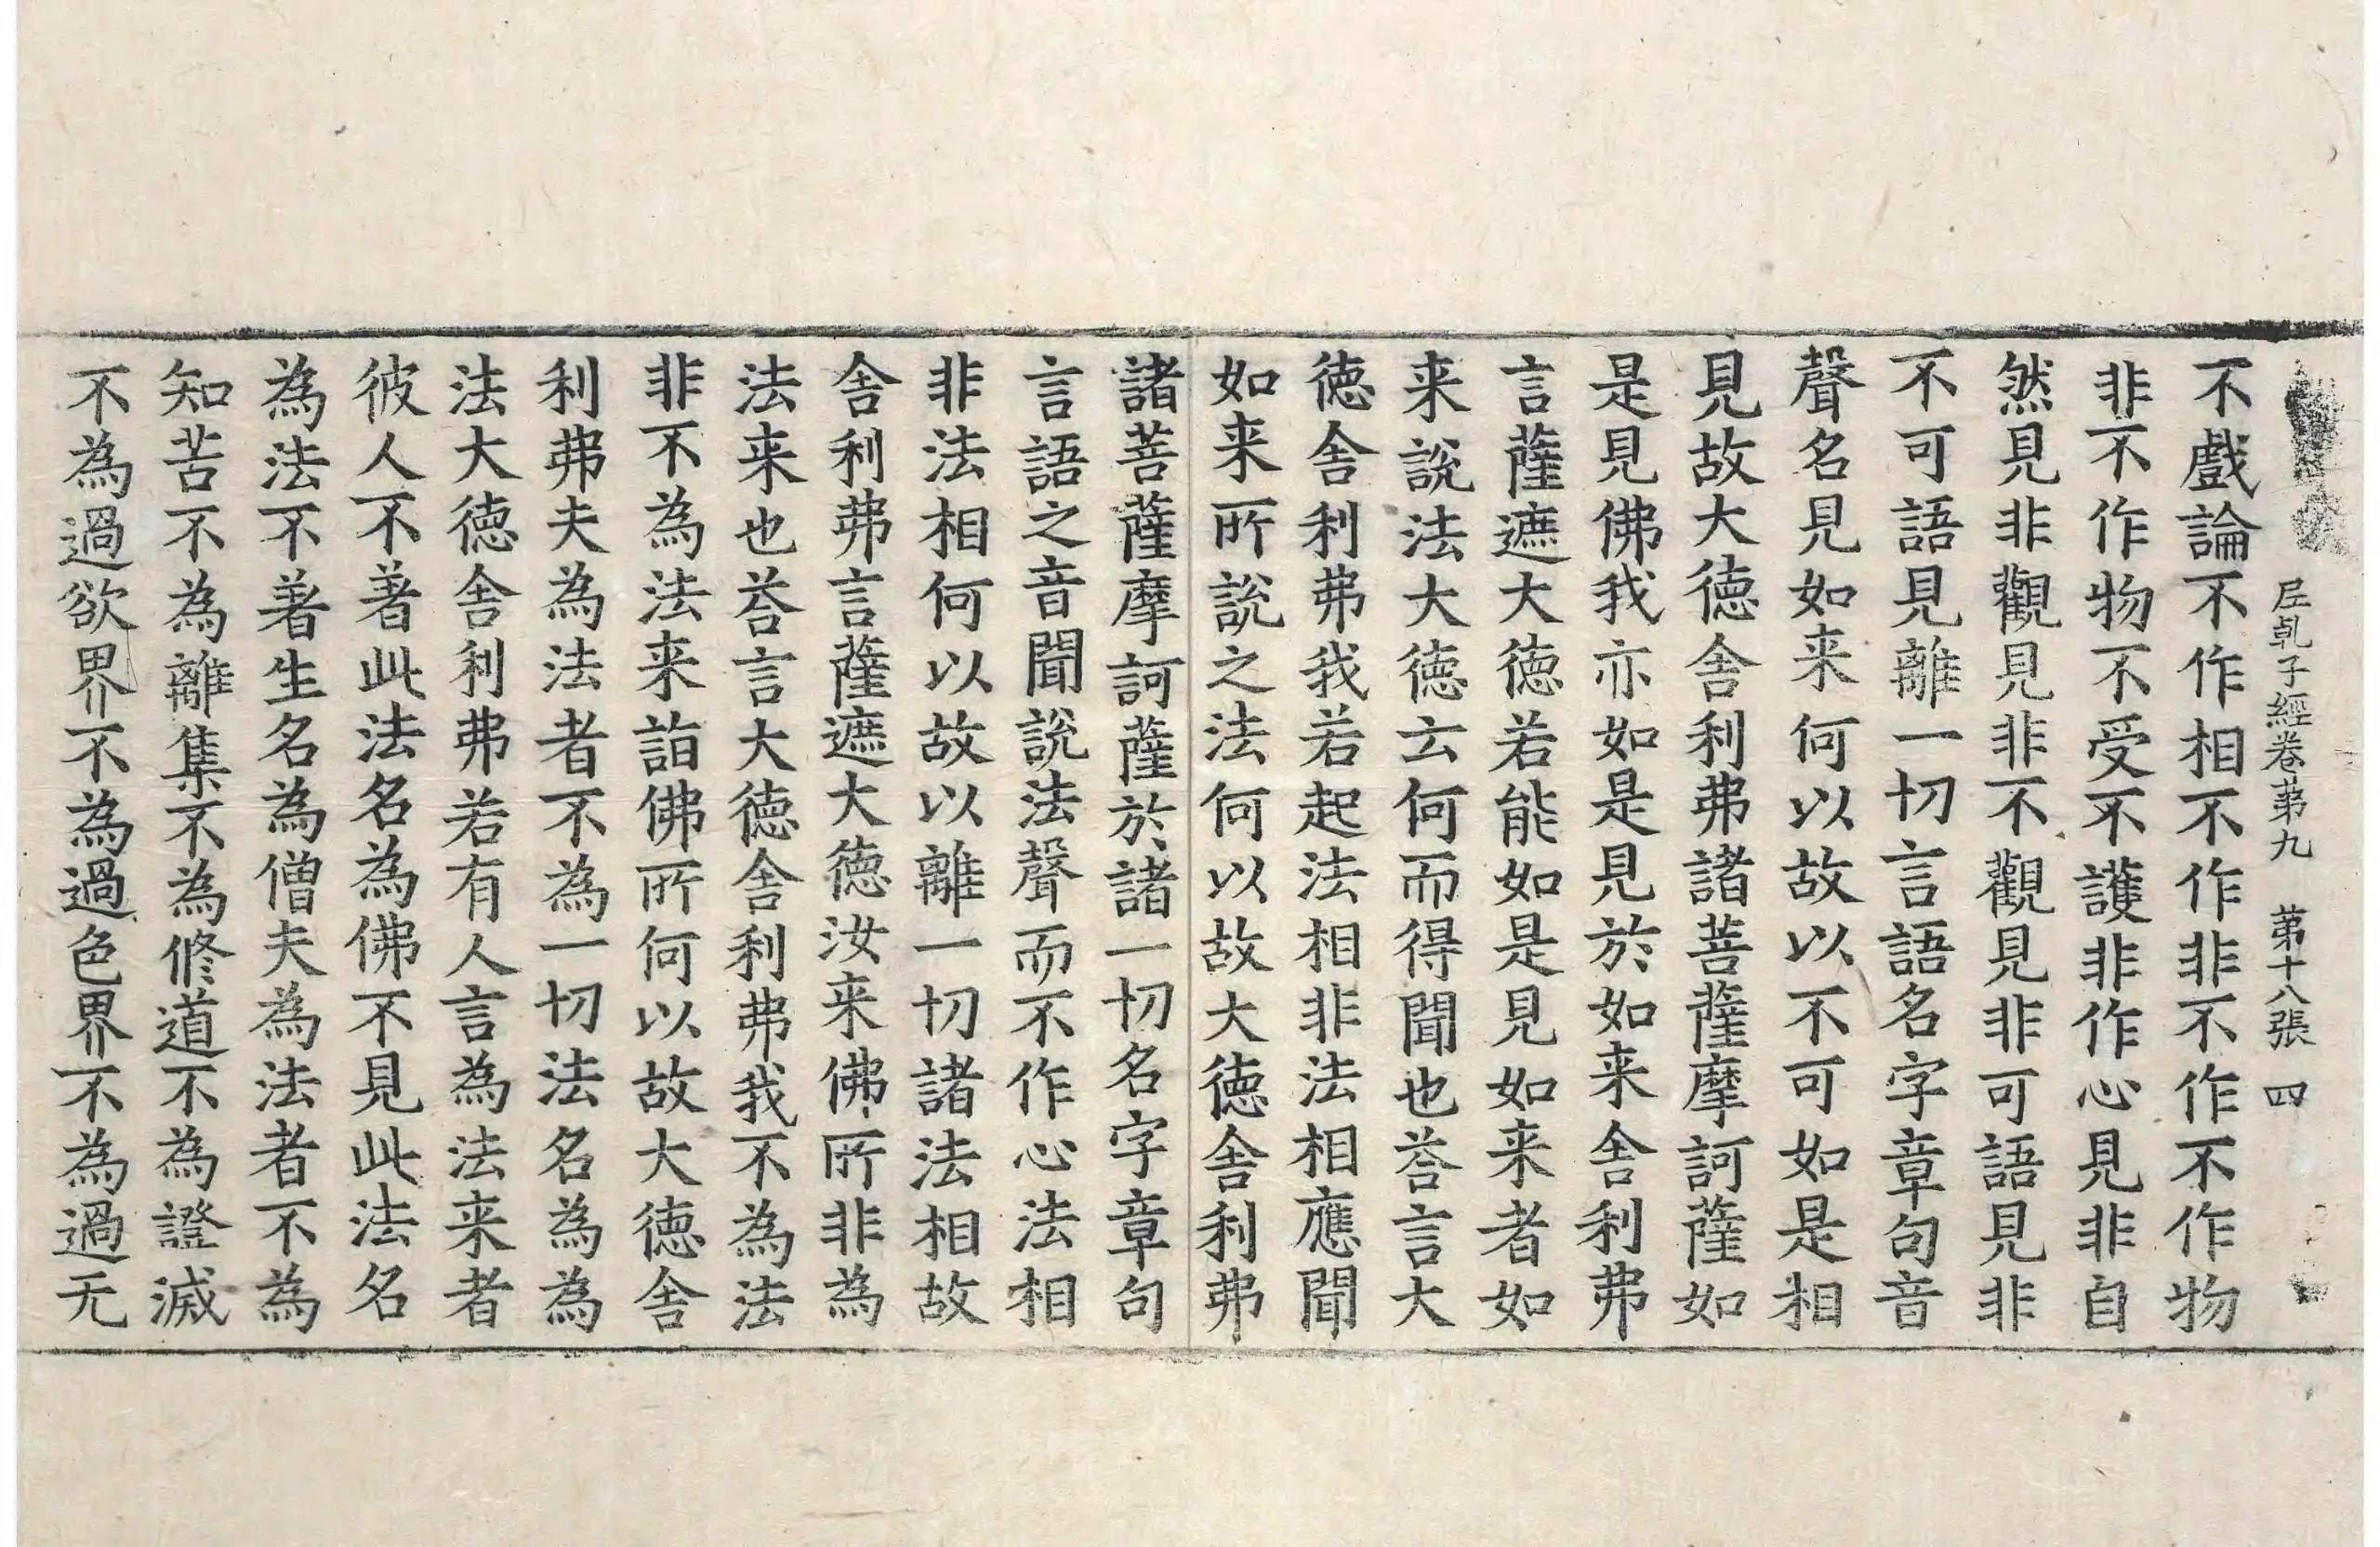 尼乹子經卷苐九 苐十八張 四
不戲論不作相不作非不作不作物
非不作物不受不護非作心見非自
然見非觀見非不觀見非可語見非
不可語見離一切言語名字章句音
聲名見如来何以故以不可如是相
見故大德舍利弗諸菩薩摩訶薩如
是見佛我亦如是見於如来舍利弗
言薩遮大德若能如是見如来者如
来說法大德云何而得聞也荅言大
德舍利弗我若起法相非法相應聞
如来所說之法何以故大德舍利弗
諸菩薩摩訶薩於諸一切名字章句
言語之音聞說法聲而不作心法相
非法相何以故以離一切諸法相故
舍利弗言薩遮大德汝来佛所非為
法来也荅言大德舍利弗我不為法
非不為法来詣佛所何以故大德舍
利弗夫為法者不為一切法名為為
法大德舍利弗若有人言為法来者
彼人不著此法名為佛不見此法名
為法不著生名為僧夫為法者不為
知苦不為離集不為修道不為證滅
不為過欲界不為過色界不為過无